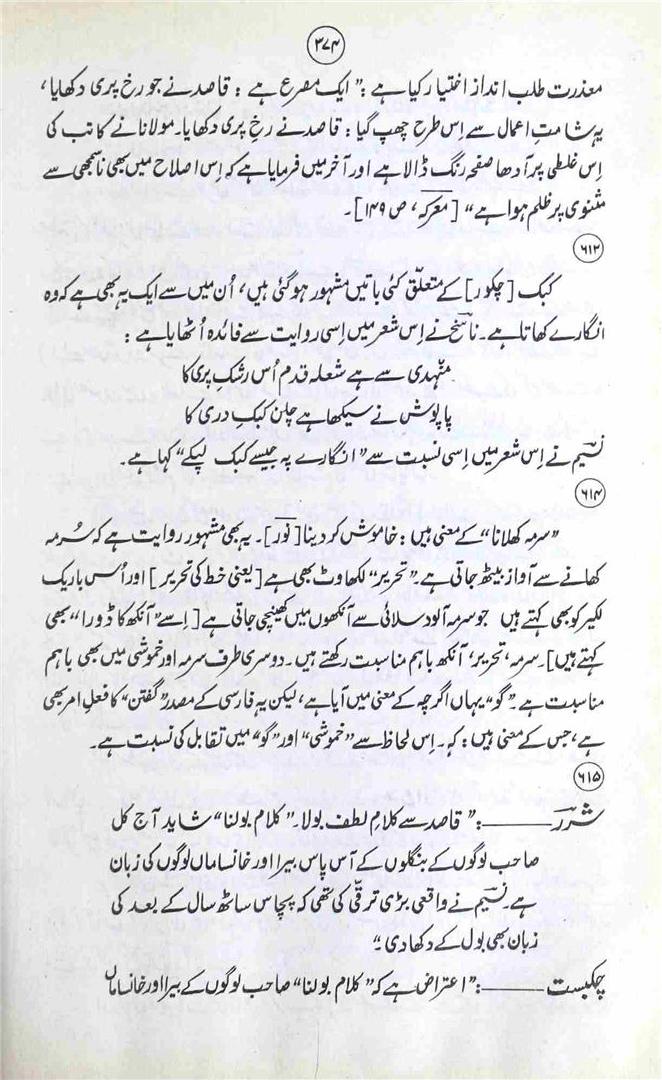 ۳۷۴
معذرت طلب انداز اختیار کیا ہے : " ایک مصرع ہے : قاصد نے جو رخ پری دکھایا ،
یہ شامتِ اعمال سے اِس طرح چھپ گیا : قاصد نے رخِ پری دکھایا۔ مولانا نے کاتب کی
اِس غلطی پر آدھا صفحہ رنگ ڈالا ہے اور آخر میں فرمایا ہے کہ اِس اصلاح میں بھی ناسمجھی سے
مثنوی پر ظلم ہوا ہے " [معرکہ ، ص ۱۴۹]۔
۶۱۲
کبک [چکور] کے متعلّق کئی باتیں مشہور ہوگئی ہیں ، اُن میں سے ایک یہ بھی ہے کہ وہ
انگارے کھاتا ہے۔ ناسخ نے اِس شعر میں اِسی روایت سے فائدہ اُٹھایا ہے :
منہدی سے ہے شعلہ قدم اُس رشکِ پری کا
پاپوش نے سیکھا ہے چلن کبکِ دری کا
نسیم نے اِس شعر میں اِسی نسبت سے " انگارے پہ جیسے کبک لپکے " کہا ہے۔
۶۱۴
" سرمہ کھلانا " کے معنی ہیں : خاموش کر دینا [نور]۔ یہ بھی مشہور روایت ہے کہ سُرمہ
کھانے سے آواز بیٹھ جاتی ہے۔ " تحریر " لکھاوٹ بھی ہے [یعنی خط کی تحریر] اور اُس باریک
لکیر کو بھی کہتے ہیں جو سرمہ آلود سلائی سے آنکھوں میں کھینچی جاتی ہے [اِسے " آنکھ کا ڈورا " بھی
کہتے ہیں]۔ سرمہ ، تحریر ، آنکھ باہم مناسبت رکھتے ہیں۔ دوسری طرف سرمہ اور خموشی میں بھی باہم
مناسبت ہے۔ " گو " یہاں اگرچہ کے معنی میں آیا ہے ، لیکن یہ فارسی کے مصدر " گفتن " کا فعلِ امر بھی
ہے ، جس کے معنی ہیں : کہ۔ اِس لحاظ سے " خموشی " اور " گو " میں تقابل کی نسبت ہے۔
۶۱۵
شرر ــــــــ : " قاصد سے کلامِ لطف بولا۔ " کلام بولنا " شاید آج کل
صاحب لوگوں کے بنگلوں کے آس پاس بیرا اور خانساماں لوگوں کی زبان
ہے۔ نسیم نے واقعی بڑی ترقّی کی تھی کہ پچاس ساٹھ سال کے بعد کی
زبان بھی بول کے دکھا دی۔ "
چکبست ــــــــ : " اعتراض ہے کہ " کلام بولنا " صاحب لوگوں کے بیرا اور خانساماں